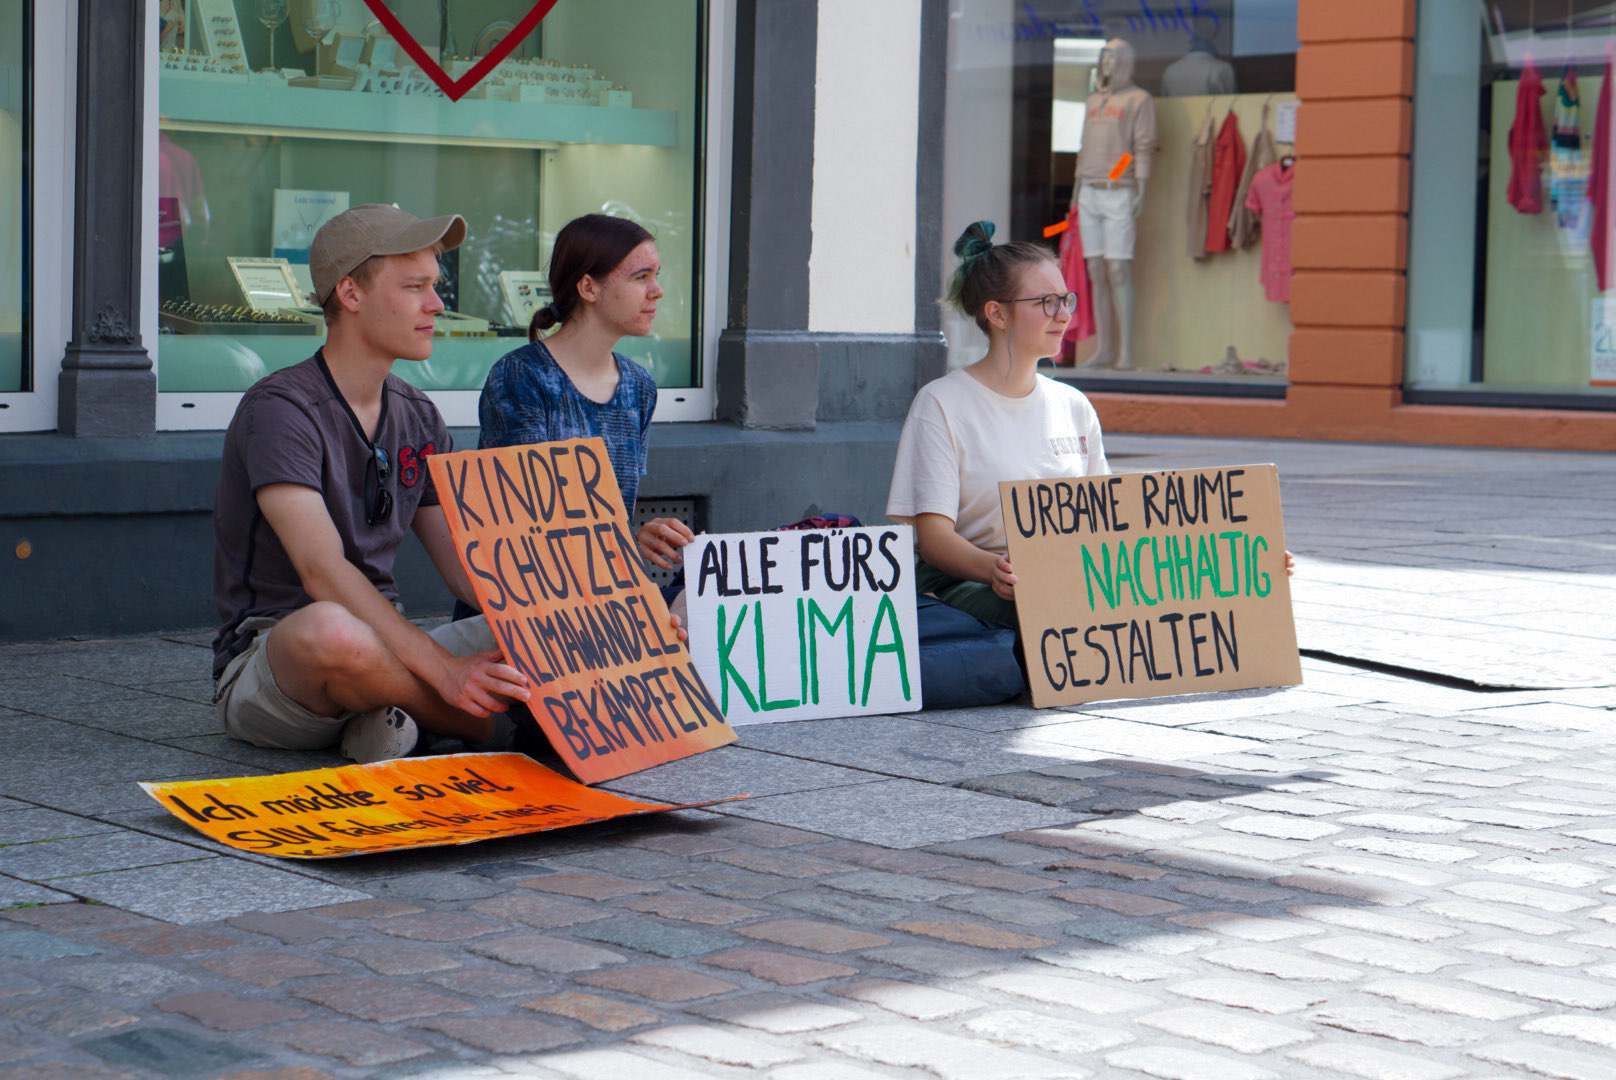 KINDER
SCHÜTZEN
KLIMAWANDEL
BEKÄMPFEN
ALLE FÜRS
KLIMA
URBANE RÄUME
NACHHALTIG
GESTALTEN
Ich möchte so viel
SUV fahren bis mein